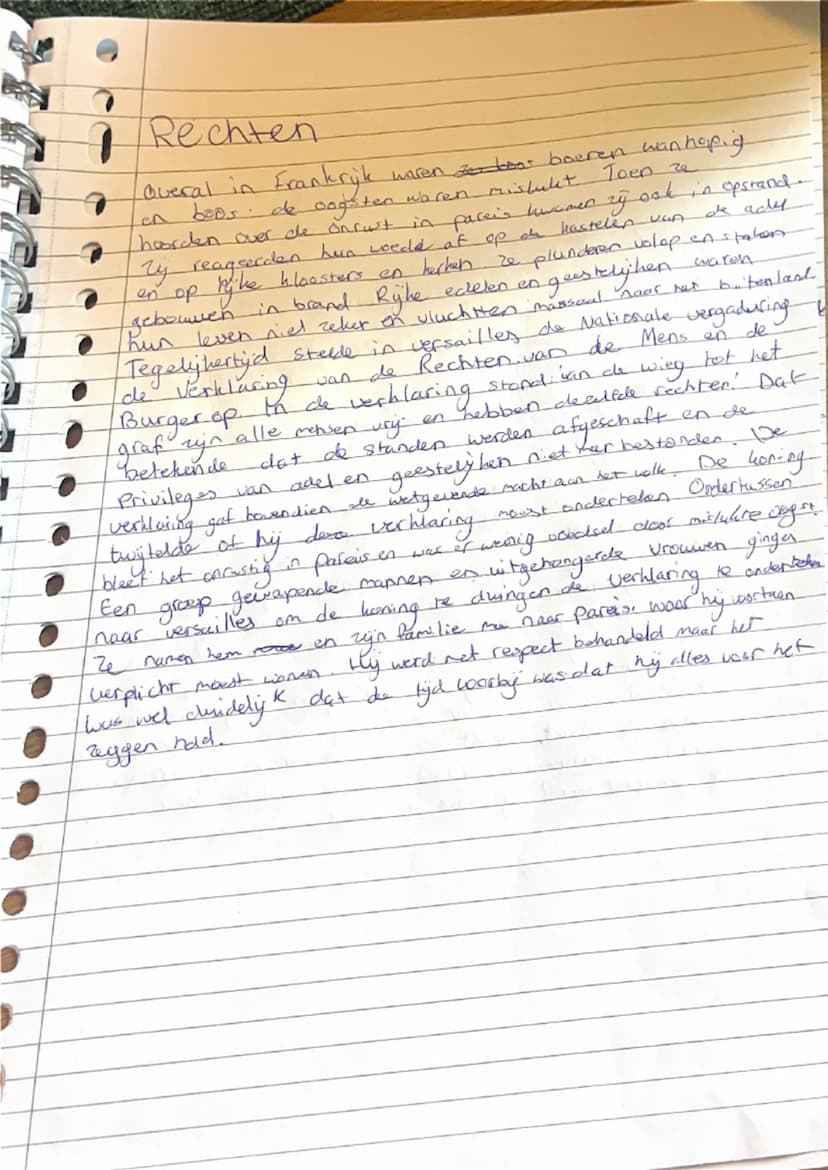 Rechten
overal in Frankrijk waren boeren wanhopig
en boos. de oogsten waren mislukt. Toen ze
hoorden over de onrust in pareis kwamen zij ook in opstand.
Zij reageerden hun woede af op de kastelen van de adel
en op rijke kloosters en kerken ze plunderen volop en staken
gebouwen in brand Rijke edelen en geestelijken waren
hun leven niet zeker en vluchtten massaal naar het buitenland.
Tegelijkertijd stelde in versailles de Nationale vergadering
de verklaring van de Rechten van de Mens en de
Burger op. In de verklaring stond: van de wieg tot het
graf zijn alle mensen vrij en hebben dezelfde rechten! Dat
betekende dat de standen werden afgeschaft en de
Privileges van adel en geestelijken niet meer bestonden. De
verklaring gaf bovendien de wetgevende macht aan het volk. De koning
twijfelde of hij deze verklaring moest ondertekenen Ondertussen
bleef het onrustig in pareis en was er weinig voedsel door mislukte oogst.
Een groep gewapende mannen en uitgehongerde vrouwen gingen
naar versailles om de koning te dwingen de verklaring te ondertekenen
Ze namen hem en zijn familie mee naar pareis. waar hij voortaan
verplicht moest wonen. Hij werd met respect behandeld maar het
was wel duidelijk dat de tijd voorbij was dat hij alles voor het
zeggen had.